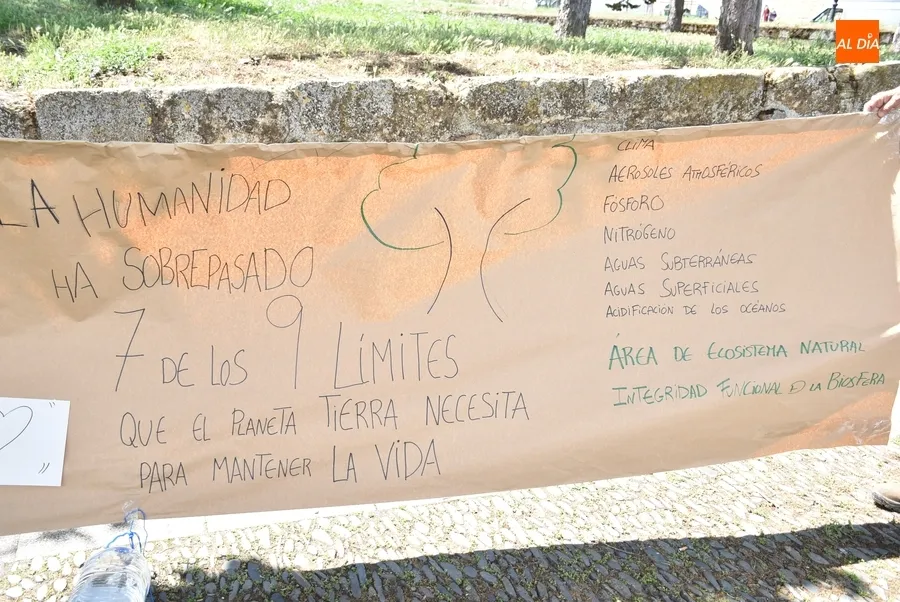 AL DÍA
LA HUMANIDAD
HA SOBREPASADO
7 DE LOS 9 LÍMITES
QUE EL PLANETA TIERRA NECESITA
PARA MANTENER LA VIDA
CLIMA
AEROSOLES ATMOSFÉRICOS
FÓSFORO
NITRÓGENO
AGUAS SUBTERRÁNEAS
AGUAS SUPERFICIALES
ACIDIFICACIÓN DE LOS OCÉANOS
ÁREA DE ECOSISTEMA NATURAL
INTEGRIDAD FUNCIONAL D LA BIOSFERA
"